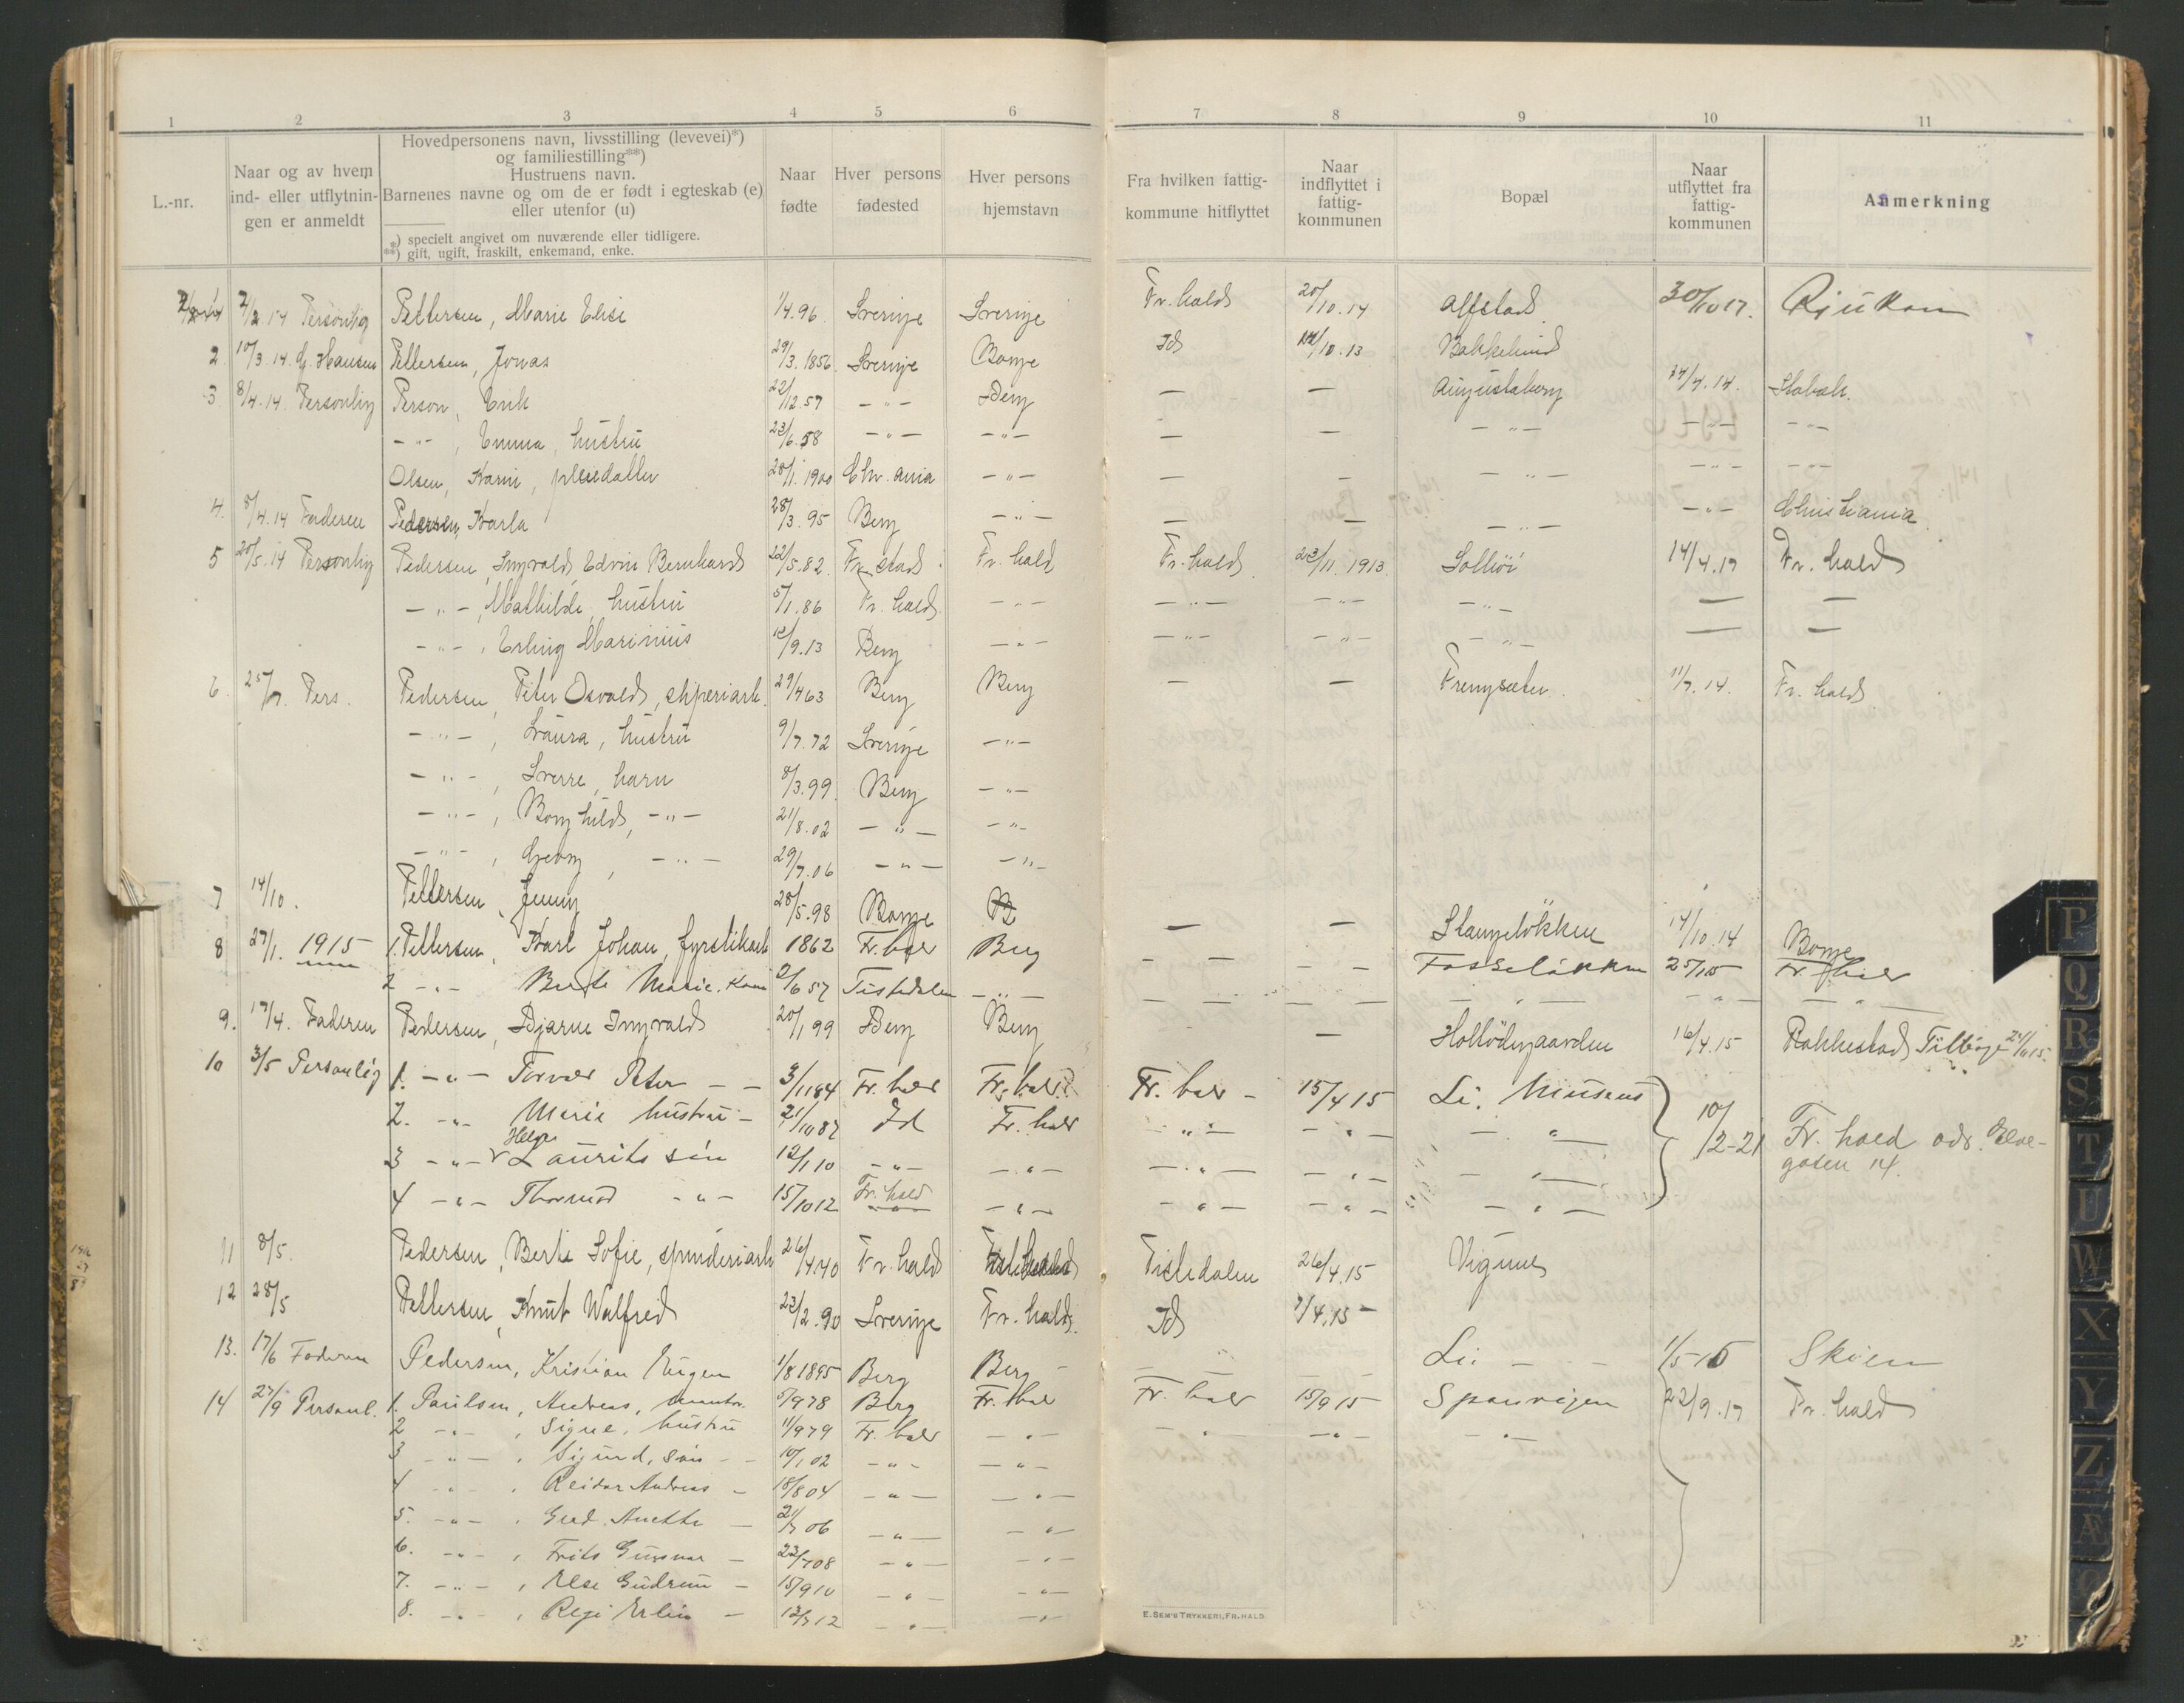 1 2 3 4 5 6 7 8 9 10 11
L.-nr.
Naar og av hvem
ind- eller utflytnin-
gen er anmeldt
Hovedpersonens navn, livsstilling (levevei)*)
og familiestilling**)
Hustruens navn.
Barnenes navne og om de er født i egteskab (e)
eller utenfor (u)
*) specielt angivet om nuværende eller tidligere.
**) gift, ugift, fraskilt, enkemand, enke.
Naar
fødte
Hver persons
fødested
Hver persons
hjemstavn
Fra hvilken fattig-
kommune hitflyttet
Naar
indflyttet i
fattig-
kommunen
Bopæl
Naar
utflyttet fra
fattig-
kommunen
Anmerkning
2/2 14 Personlig Pettersen, Marie Elise 1/4.96. Sverige Sverige Fr.hald 20/10.14 Alfstad 30/10 17. Rjukan
2. 10/3.14. G. Hansen Pettersen, Jonas 29/3.1856 Sverige Borge Id 14/10.13 Bakkelund
3 8/4.14. Personlig Person, Erik 22/12.57 -"- Berg — — Augustaberg 14/4.14. Stabæk.
-"-, Emma, hustru 23/6.58 -"- -"- — — -"- -"- -"-
Olsen, Karin, pleiedatter 20/1.1900 Chr.ania -"- — — -"- -"- -"-
4. 8/4.14 Faderen Pedersen, Karla 28/3.95 Berg -"- — — -"- -"- Christiania.
5 20/5.14 Personlig Pedersen, Ingvald Edvin Bernhard 22/5.82 Fr.stad Fr.hald Fr.hald 23/11.1913. Solhöi 14/4.17 Fr.hald
-"-, Mathilde, hustru 5/1.86 Fr.hald -"- -"- -"- -"- — —
-"-, Erling Marinius 12/9.13 Berg -"- -"- -"- -"- — —
6. 25/7. Pers. Pedersen, Peter Osvald, sliperiarb. 29/4 63 Berg Berg — — Frengsæter. 11/7.14. Fr.hald
-"-, Laura, hustru 9/7.72 Sverige -"-
-"-, Sverre, barn 8/3.99 Berg -"-
-"-, Borghild, -"- 21/8.02 -"- -"-
-"-, Georg, -"- 29/7.06 -"- -"-
7 14/10. Pettersen, Jenny 28/5.98 Borge B — — Stangeløkken 14/10.14 Borge
8 27/1. 1915 1. Pettersen, Karl Johan, fyrstikarb 1862 Fr.hald Berg — — — — Fosseløkken 25/1 15 Fr.hald
2 -"- Berte Marie. Kone 2/6 57 Tistedalen -"- — — — — -"- -"- -"-
9. 17/4. Faderen Pedersen, Bjarne Ingvald 20/1 99 Berg Berg — Holtødegaarden 16/4.15 Rakkestad Tilbage 24/11 15.
10 3/5 Personlig 1. -"- Torvar Peter — — 3/11 84 Fr.hald Fr.hald Fr.hald - 15/4 15 Li. Musens 10/2-21 Fr.hald adr. Elve-
gaten 14.
2. -"- Marie hustru - 21/10 87 Id Fr.hald -"- -"- -"-
3 -"- Helge Laurits sön 12/1 10 -"- -"- -"- -"- -"-
4 -"- Thormod -"- 15/10 12 Fr.hald -"- -"- -"- -"-
11 8/5. Pedersen, Berte Sofie, spinderiarb 26/4.40 Fr.hald Tistedalen 26/4.15 Vignes
12 28/5 Pettersen, Knut Walfred 23/2.90 Sverige Fr.hald. Id 7/4.15 -
13. 17/6 Faderen Pedersen, Kristian Eugen 1/8 1895 Berg Berg - — — Li - - 1/5-16 Skien
14 27/9 Personl. 1. Paulsen, Andreas, 5/9 78 Berg Fr.hald Fr.hald 15/9 15 Sponvigen 22/9.17 Fr.hald
2 -"-, Signe, hustru 11/9 79 Fr.hald -"- -"- -"- -"-
3 -"-, Sigurd, sön - - 10/1 02 -"- -"-
4 -"-, Reidar Andreas - 18/8 04 -"- -"-
5. -"-, Gud. Anette - 21/3 06 -"- -"-
6. -"-, Frits Gunnar - 23/7 08 -"- -"-
7. -"-, Else Gudrun - 15/9 10 -"- -"-
8. -"-, Erlin - 13/3 12 -"- -"-
E. SEM'S TRYKKERI, FR.HALD
P
Q
R
S
T
U
W
X
Y
Z
Æ